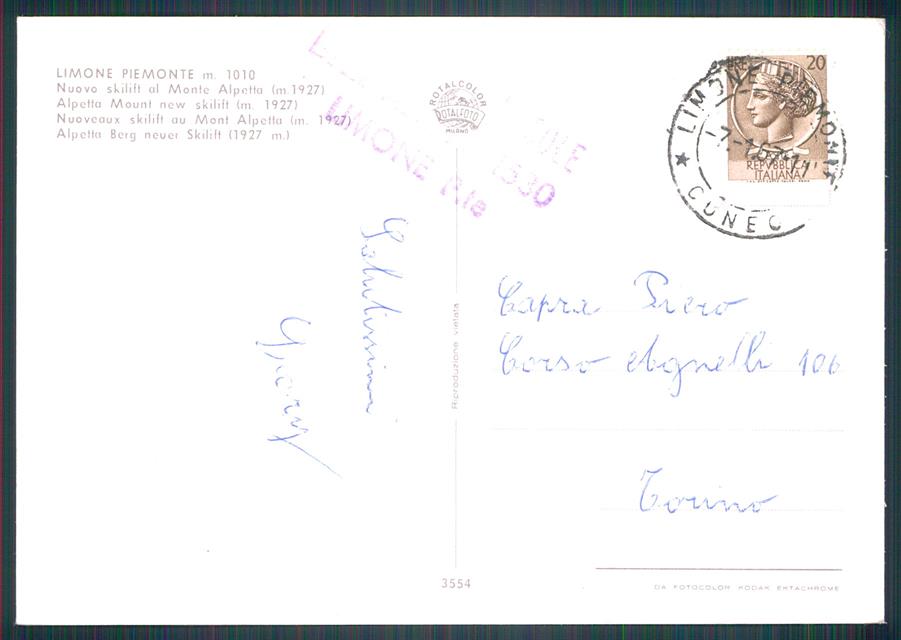 LIMONE PIEMONTE m. 1010
Nuovo skilift al Monte Alpetta (m.1927)
Alpetta Mount new skilift (m. 1927)
Nuoveaux skilift au Mont Alpetta (m. 1927)
Alpetta Berg neuer Skilift (1927 m.)
ROTALCOLOR
ROTALFOTO
MILANO
LIMONE P.te
1530
20
REPVBBLICA
ITALIANA
LIMONE PIEMONTE
CUNEO
Salutissimi
Capra Piero
Corso Agnelli 106
Torino
Riproduzione vietata
3554
DA FOTOCOLOR KODAK EKTACHROME